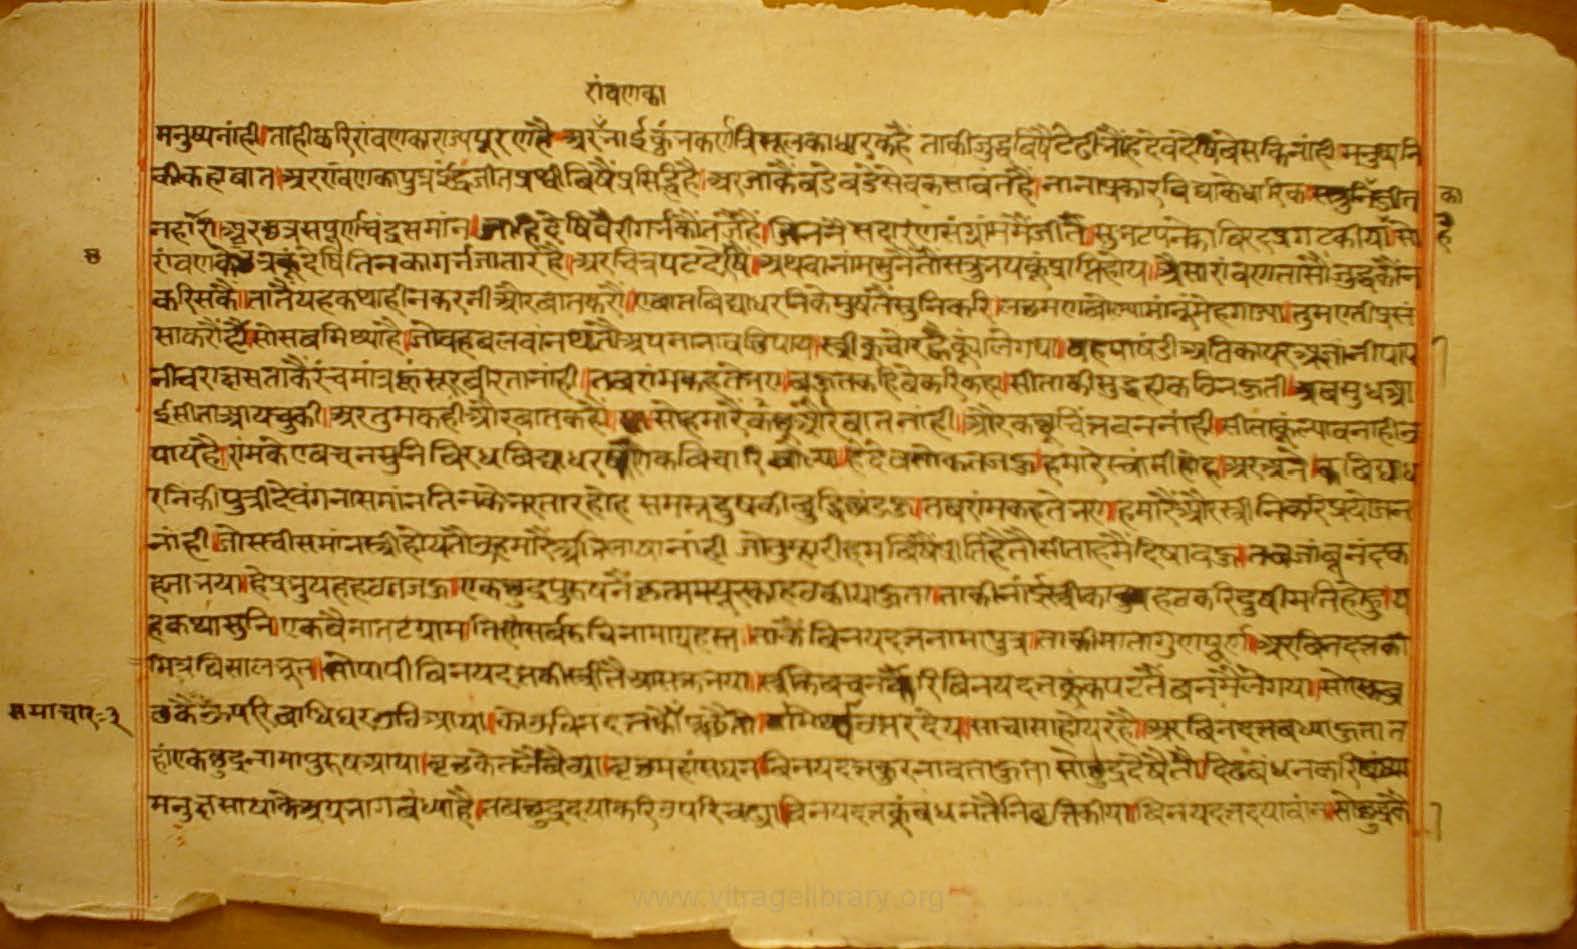 रांवणका
मनुष्य नांही। ताही करि रांवण का राज्य पूरण है। अर भाई कुंभकर्ण त्रिसूल का धारक है ताकी जुद्ध विषै देव देषिवे सक्ति नांही मनुष्यनि
की कहा बात। अर रांवण का पुत्र इंद्रजीत प्रथ्वी विषैं प्रसिद्धि है। अर जाकै बडे बडे सेवक सावंत हैं। नाना प्रकार विद्या के धारिक सत्रुनि जीत
का
न हारे। अर छत्र संपूर्ण चंद्र समांन। जाहि देषि वैरी गर्व कौं तजै हैं। जिननै सदा रण संग्राम मैं जीति सुभटपने का विरद प्रगट कीया। सो
है
४
रांवण के छत्र कूं देषि तिनका गर्व जाता रहै। अर चित्रपट देषि। अथवा नांम सुनै तौ सत्रु भय कूं प्राप्ति होय। अैसा रांवण तासौं जुद्ध कौंन
करि सकै। तातैं यह कथा ही न करनी और बात करौ। ए बात विद्याधरनि के मुष तैं सुनि करि। लछमण बोल्या मांनूं मेह गाज्या। तुम एती प्रसं
सा करौ हो सो सब मिथ्या है। जो वह बलवांन था तौ अपना नांव छिपाय। स्त्री कूं चोर कै क्यूं ले गया। वह पाषंडी अति कायर अज्ञांनी पापी
नीच राक्षस ताकै रंच मात्र हूं सूरवीरता नांही। तब रांम कहते भए। बहुत कहिवे करि कहा। सीता की सुद्ध ही कठिन हुती। अब सुध आ
ई सीता आय चुकी। अर तुम कही और बात करौ सो हमारै कछू और बात नांही। और कछू चिंतवन नांही। सीता कूं ल्यावना ही उ
पाय है। रांम के ए वचन सुनि विरध विद्याधर एक विचारि बोल्या। हे देव सोक तजहु। हमारे स्वांमी होहु। अर अनेक विद्याध
रनि की पुत्री देवंगना समांन तिनके भरतार होहु समस्त दुष की बुद्धि छांडहु। तब रांम कहते भए। हमारै और स्त्रीनि करि प्रयोजन
नांही। जो सची समांन स्त्री होय तौ हू हमारै अभिलाषा नांही जो तुम्हारी हम विषैं प्रीति है तौ सीता हमैं दिषावहु। तब जांबूनंद क
हता भया। हे प्रभु यह हठ तजहु। एक छुद्र पुरुष नैं कृत्रम मयूर का हठ कीया हुता। ताकी नांई स्त्री का हठ करि दुषी मति होहु। य
ह कथा सुनि। एक वैनातट ग्राम तिहां सर्वरुचि नामा ग्रहस्त। ताकै विनयदत्त नामा पुत्र। ताकी माता गुणपूर्णा। अर विनयदत्त का
मित्र विसालभूत। सो पापी विनयदत्त की स्त्री तैं आसक्त भया। स्त्री के वचन करि विनयदत्त कूं कपट तैं वन मैं ले गया। सो एक वृ
समाचार-२
छ कै ऊपरि बांधि घर उठि आया। कोउ विनयदत्त कौं पूछै तौ। मिथ्या उत्तर देय। साचा सा होय रहै। अर विनयदत्त बंध्या हुता त
हां एक छुद्र नामा पुरुष आया। वृछ के तलै बैठा। वृछ महा सघन विनयदत्त कुरलावता हुता सो छुद्र देषै तौ। दिढ बंधन करि
मनुष साषा के अग्रभाग बंध्या है। तब छुद्र दया करि उपरि चढ्या। विनयदत्त कूं बंधन तैं निवृत्ति कीया। विनयदत्त दयावांन। सो छुद्र कै
www.vitragelibrary.org